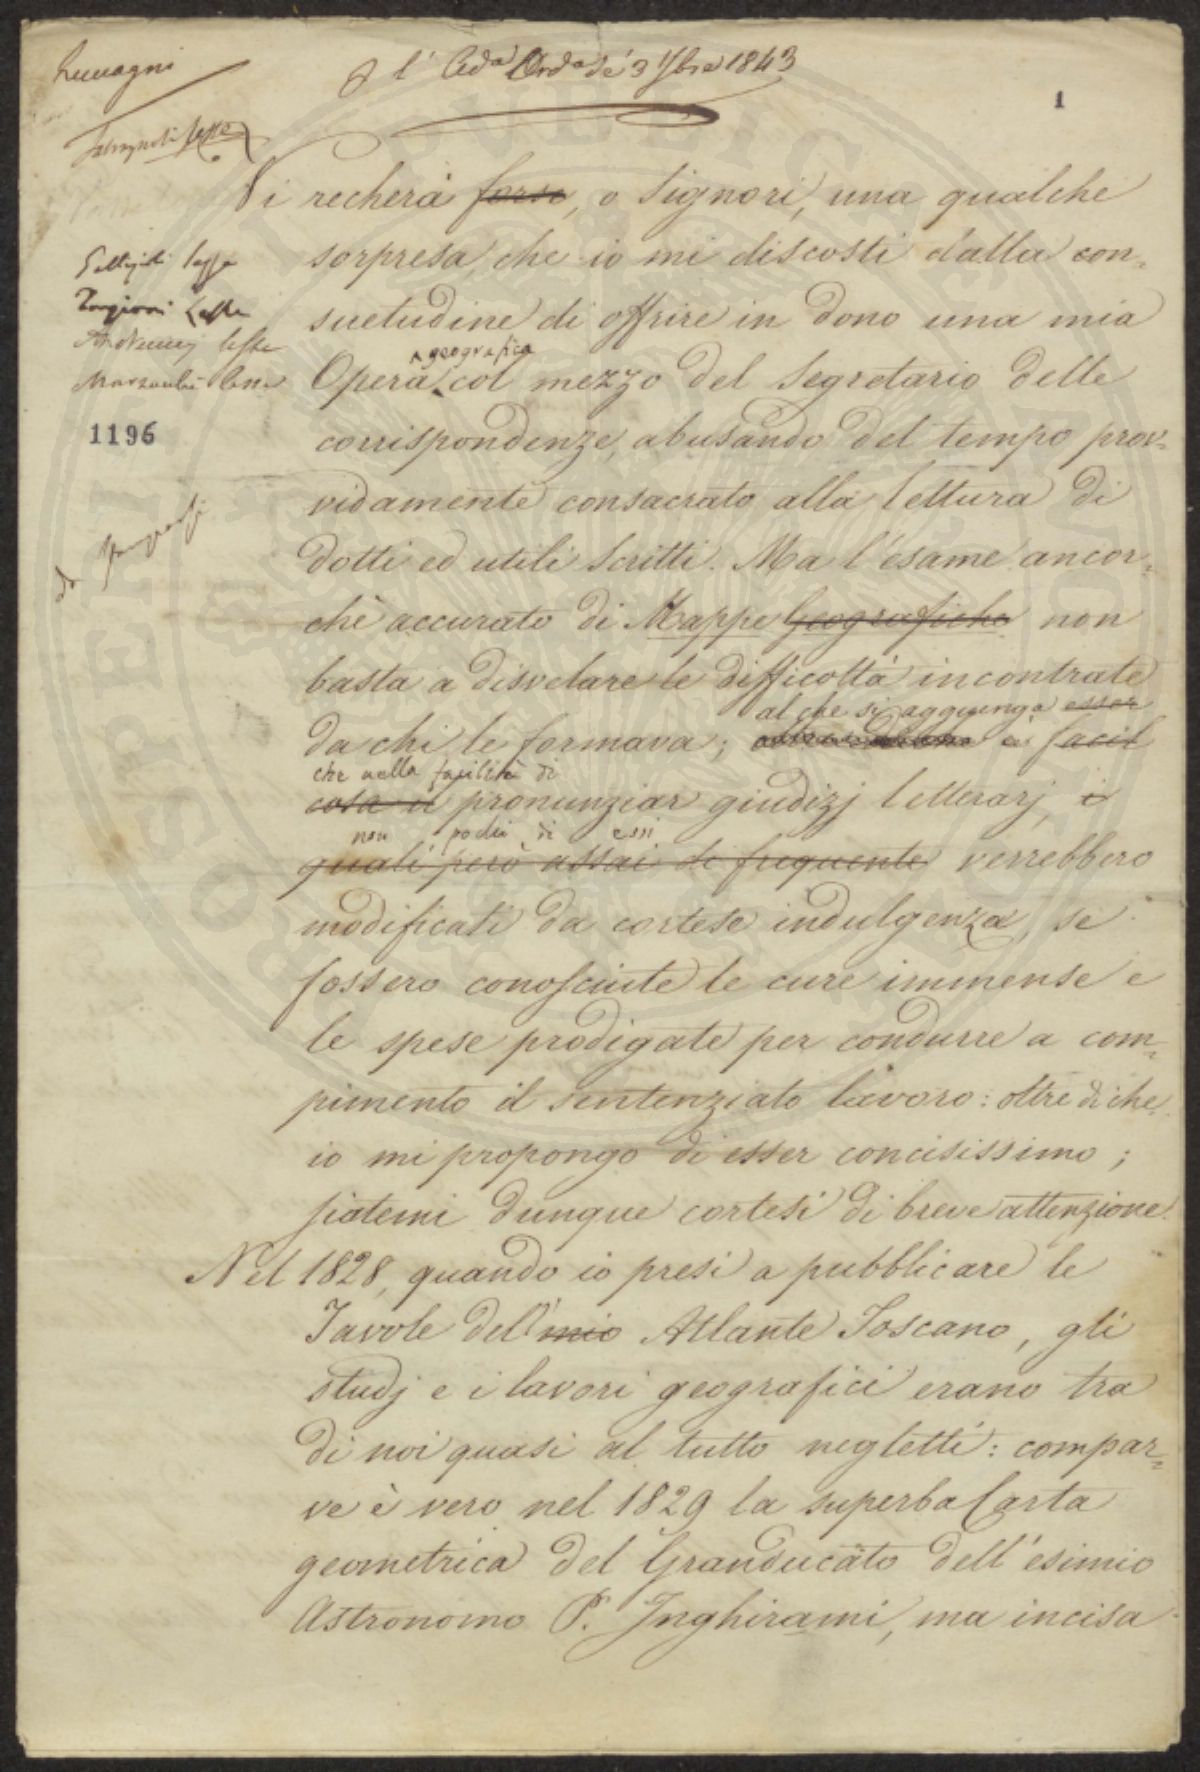 l' Ad.a Ord.a de' 3 7bre 1843
1
Vi recherà forse, o Signori, una qualche
sorpresa, che io mi discosti dalla con=
suetudine di offrire in dono una mia
geografica
Opera col mezzo del Segretario delle
corrispondenze, abusando del tempo prov=
1196
vidamente consacrato alla lettura di
dotti ed utili Scritti. Ma l'esame ancor=
chè accurato di Mappe Geografiche non
basta a disvelare le difficoltà incontrate
al che si aggiunga esser
da chi le formava; è facil
che nella facilità di
cosa il pronunziar giudizj letterarj, i
non pochi di essi
quali però assai di frequente verrebbero
modificati da cortese indulgenza, se
fossero conosciute le cure immense e
le spese prodigate per condurre a com=
pimento il sentenziato lavoro: oltre di che
io mi propongo di esser concisissimo;
siatemi dunque cortesi di breve attenzione.
Nel 1828, quando io presi a pubblicare le
Tavole dell' mio Atlante Toscano, gli
studj e i lavori geografici erano tra
di noi quasi al tutto negletti: compar=
ve è vero nel 1829 la superba Carta
geometrica del Granducato dell'esimio
Astronomo P. Inghirami, ma incisa